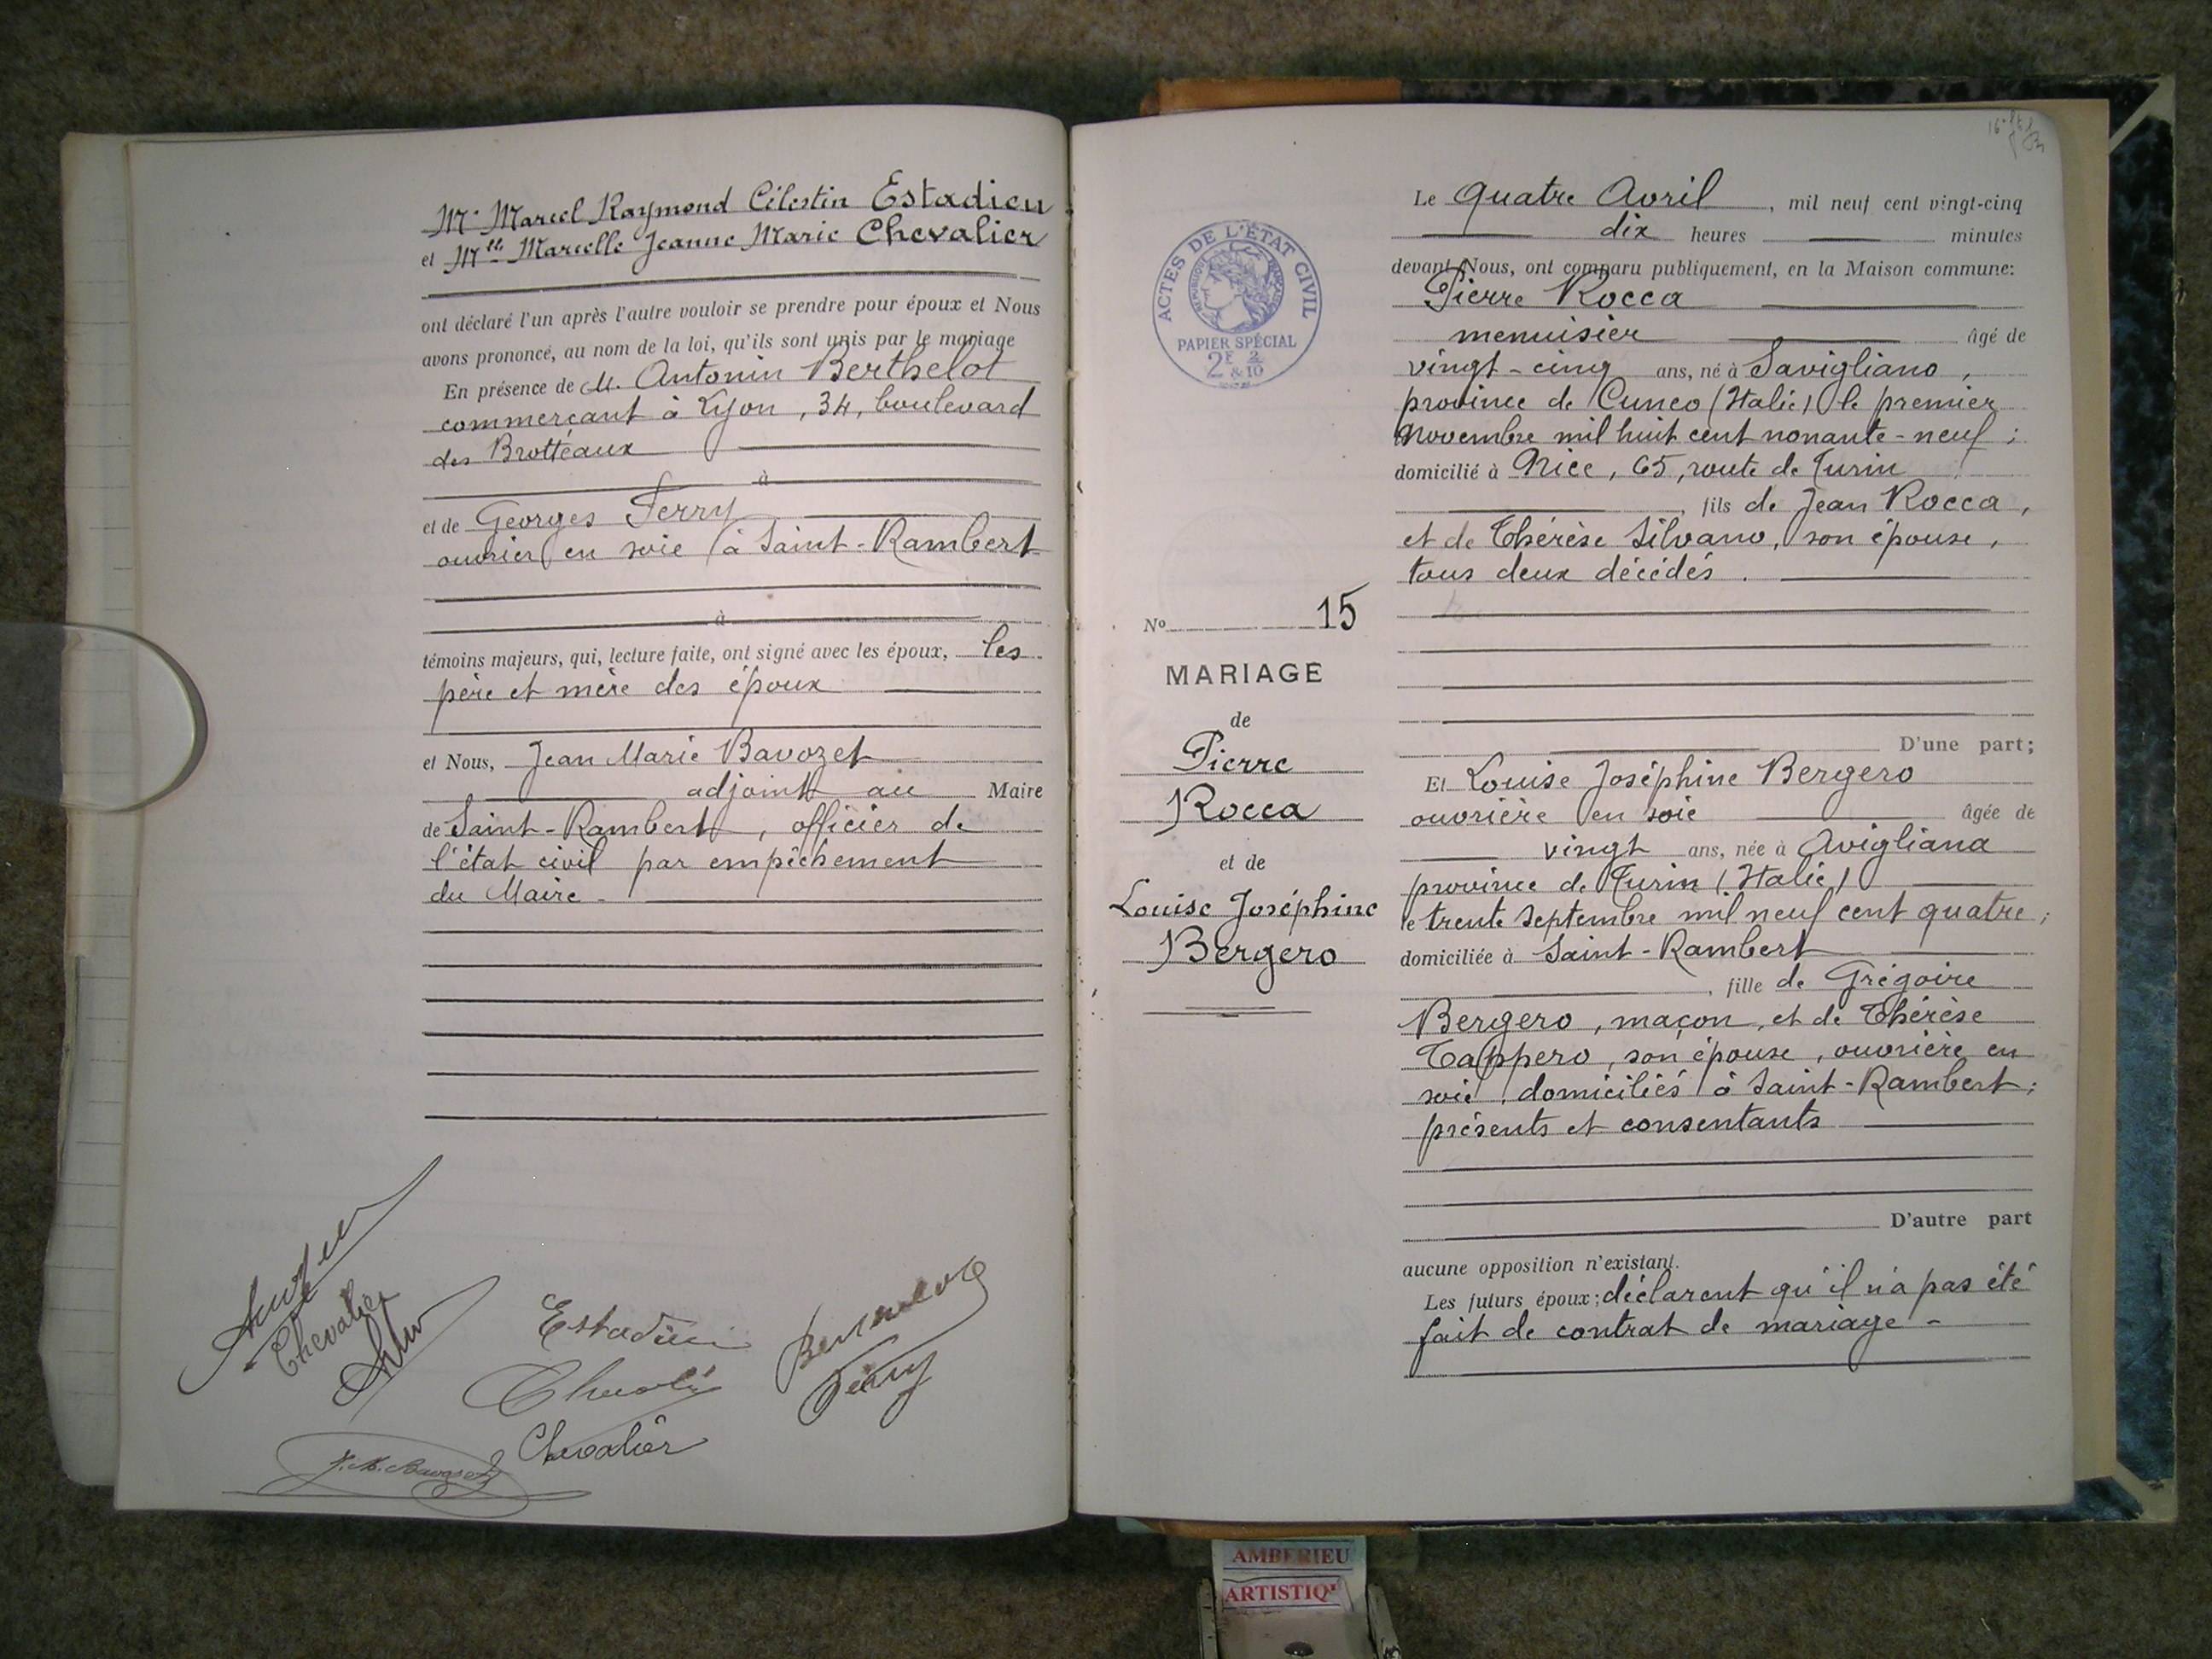 Mr Marcel Raymond Célestin Estadieu
et Mlle Marcelle Jeanne Marie Chevalier
ont déclaré l'un après l'autre vouloir se prendre pour époux et Nous
avons prononcé, au nom de la loi, qu'ils sont unis par le mariage
En présence de M. Antonin Berthelot
commerçant à Lyon, 34, boulevard
des Brotteaux
à
et de Georges Ferry
ouvrier en soie à Saint-Rambert
à
témoins majeurs, qui, lecture faite, ont signé avec les époux, les
père et mère des époux
et Nous, Jean Marie Bavozet
adjoint au Maire
de Saint-Rambert, officier de
l'état civil par empêchement
du Maire.
Chevalier
Estadieu
Chevalier
J. M. Bavozet
ACTES DE L'ÉTAT CIVIL
RÉPUBLIQUE FRANÇAISE
PAPIER SPÉCIAL
2F & 2/10
No 15
MARIAGE
de
Pierre
Rocca
et de
Louise Joséphine
Bergero
Le quatre Avril, mil neuf cent vingt-cinq
dix heures minutes
devant Nous, ont comparu publiquement, en la Maison commune:
Pierre Rocca
menuisier âgé de
vingt-cinq ans, né à Savigliano,
province de Cuneo (Italie) le premier
Novembre mil huit cent nonante-neuf;
domicilié à Nice, 65, route de Turin
, fils de Jean Rocca,
et de Thérèse Silvano, son épouse,
tous deux décédés.
D'une part;
Et Louise Joséphine Bergero
ouvrière en soie âgée de
vingt ans, née à Avigliana
province de Turin (Italie)
le trente Septembre mil neuf cent quatre;
domiciliée à Saint-Rambert
, fille de Grégoire
Bergero, maçon, et de Thérèse
Tappero, son épouse, ouvrière en
soie, domiciliés à Saint-Rambert;
présents et consentants
D'autre part
aucune opposition n'existant.
Les futurs époux; déclarent qu'il n'a pas été
fait de contrat de mariage -
AMBERIEU
ARTISTIQ